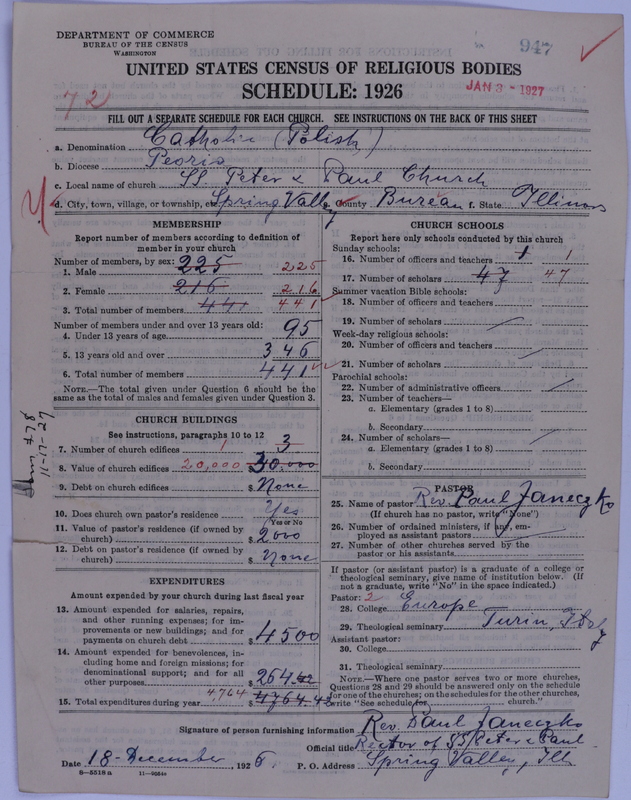 DEPARTMENT OF COMMERCE
BUREAU OF THE CENSUS
WASHINGTON
947
UNITED STATES CENSUS OF RELIGIOUS BODIES
SCHEDULE: 1926
JAN 3 - 1927
72
FILL OUT A SEPARATE SCHEDULE FOR EACH CHURCH. SEE INSTRUCTIONS ON THE BACK OF THIS SHEET
a. Denomination Catholic (Polish)
b. Diocese Peoria
c. Local name of church SS. Peter & Paul Church
d. City, town, village, or township, etc. Spring Valley e. County Bureau f. State Illinois
MEMBERSHIP
Report number of members according to definition of
member in your church
Number of members, by sex:
1. Male 225 225
2. Female 216 216
3. Total number of members 441 441
Number of members under and over 13 years old:
4. Under 13 years of age 95
5. 13 years old and over 346
6. Total number of members 441
NOTE.—The total given under Question 6 should be
same as the total of males and females given under Question 3.
Ham 478
11-17-27
CHURCH BUILDINGS
See instructions, paragraphs 10 to 12
7. Number of church edifices 1 3
8. Value of church edifices 20,000 $ 30.000
9. Debt on church edifices $ None
10. Does church own pastor's residence Yes
Yes or No
11. Value of pastor's residence (if owned by
church) $ 2000
12. Debt on pastor's residence (if owned by
church) $ None
EXPENDITURES
Amount expended by your church during last fiscal year
13. Amount expended for salaries, repairs,
and other running expenses; for im-
provements or new buildings; and for
payments on church debt $ 4500
14. Amount expended for benevolences, in-
cluding home and foreign missions; for
denominational support; and for all
other purposes $ 264 42
15. Total expenditures during year 4,764 $ 4764.42
CHURCH SCHOOLS
Report here only schools conducted by this church
Sunday schools:
16. Number of officers and teachers 1 1
17. Number of scholars 47 47
Summer vacation Bible schools:
18. Number of officers and teachers
19. Number of scholars
Week-day religious schools:
20. Number of officers and teachers
21. Number of scholars
Parochial schools:
22. Number of administrative officers
23. Number of teachers—
a. Elementary (grades 1 to 8)
b. Secondary
24. Number of scholars—
a. Elementary (grades 1 to 8)
b. Secondary
PASTOR
25. Name of pastor Rev. Paul Janeczko
(If church has no pastor, write "None")
26. Number of ordained ministers, if any, em-
ployed as assistant pastors
27. Number of other churches served by the
pastor or his assistants
If pastor (or assistant pastor) is a graduate of a college or
theological seminary, give name of institution below. (If
not a graduate, write "No" in the space indicated.)
Pastor: 2
28. College Europe
29. Theological seminary Turin, Italy
Assistant pastor:
30. College
31. Theological seminary
NOTE.—Where one pastor serves two or more churches,
Questions 28 and 29 should be answered only on the schedule
for one of the churches; on the schedules for the other churches,
write "See schedule for church."
Signature of person furnishing information Rev. Paul Janeczko
Official title Rector of SS Peter & Paul
Date 18-December, 1926. P. O. Address Spring Valley, Ill
8-5518 a 11-9654